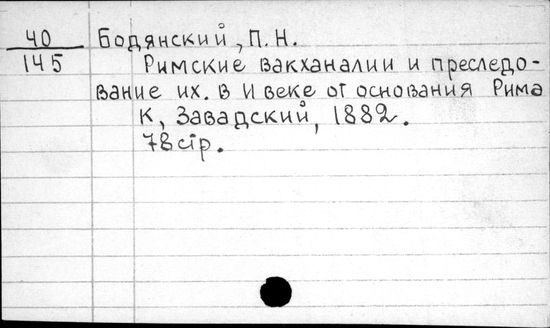 40 Бодянский, П. Н.
145 Римские вакханалии и преследо-
вание их. в VI веке от основания Рима
К, Завадский, 1882.
78 стр.